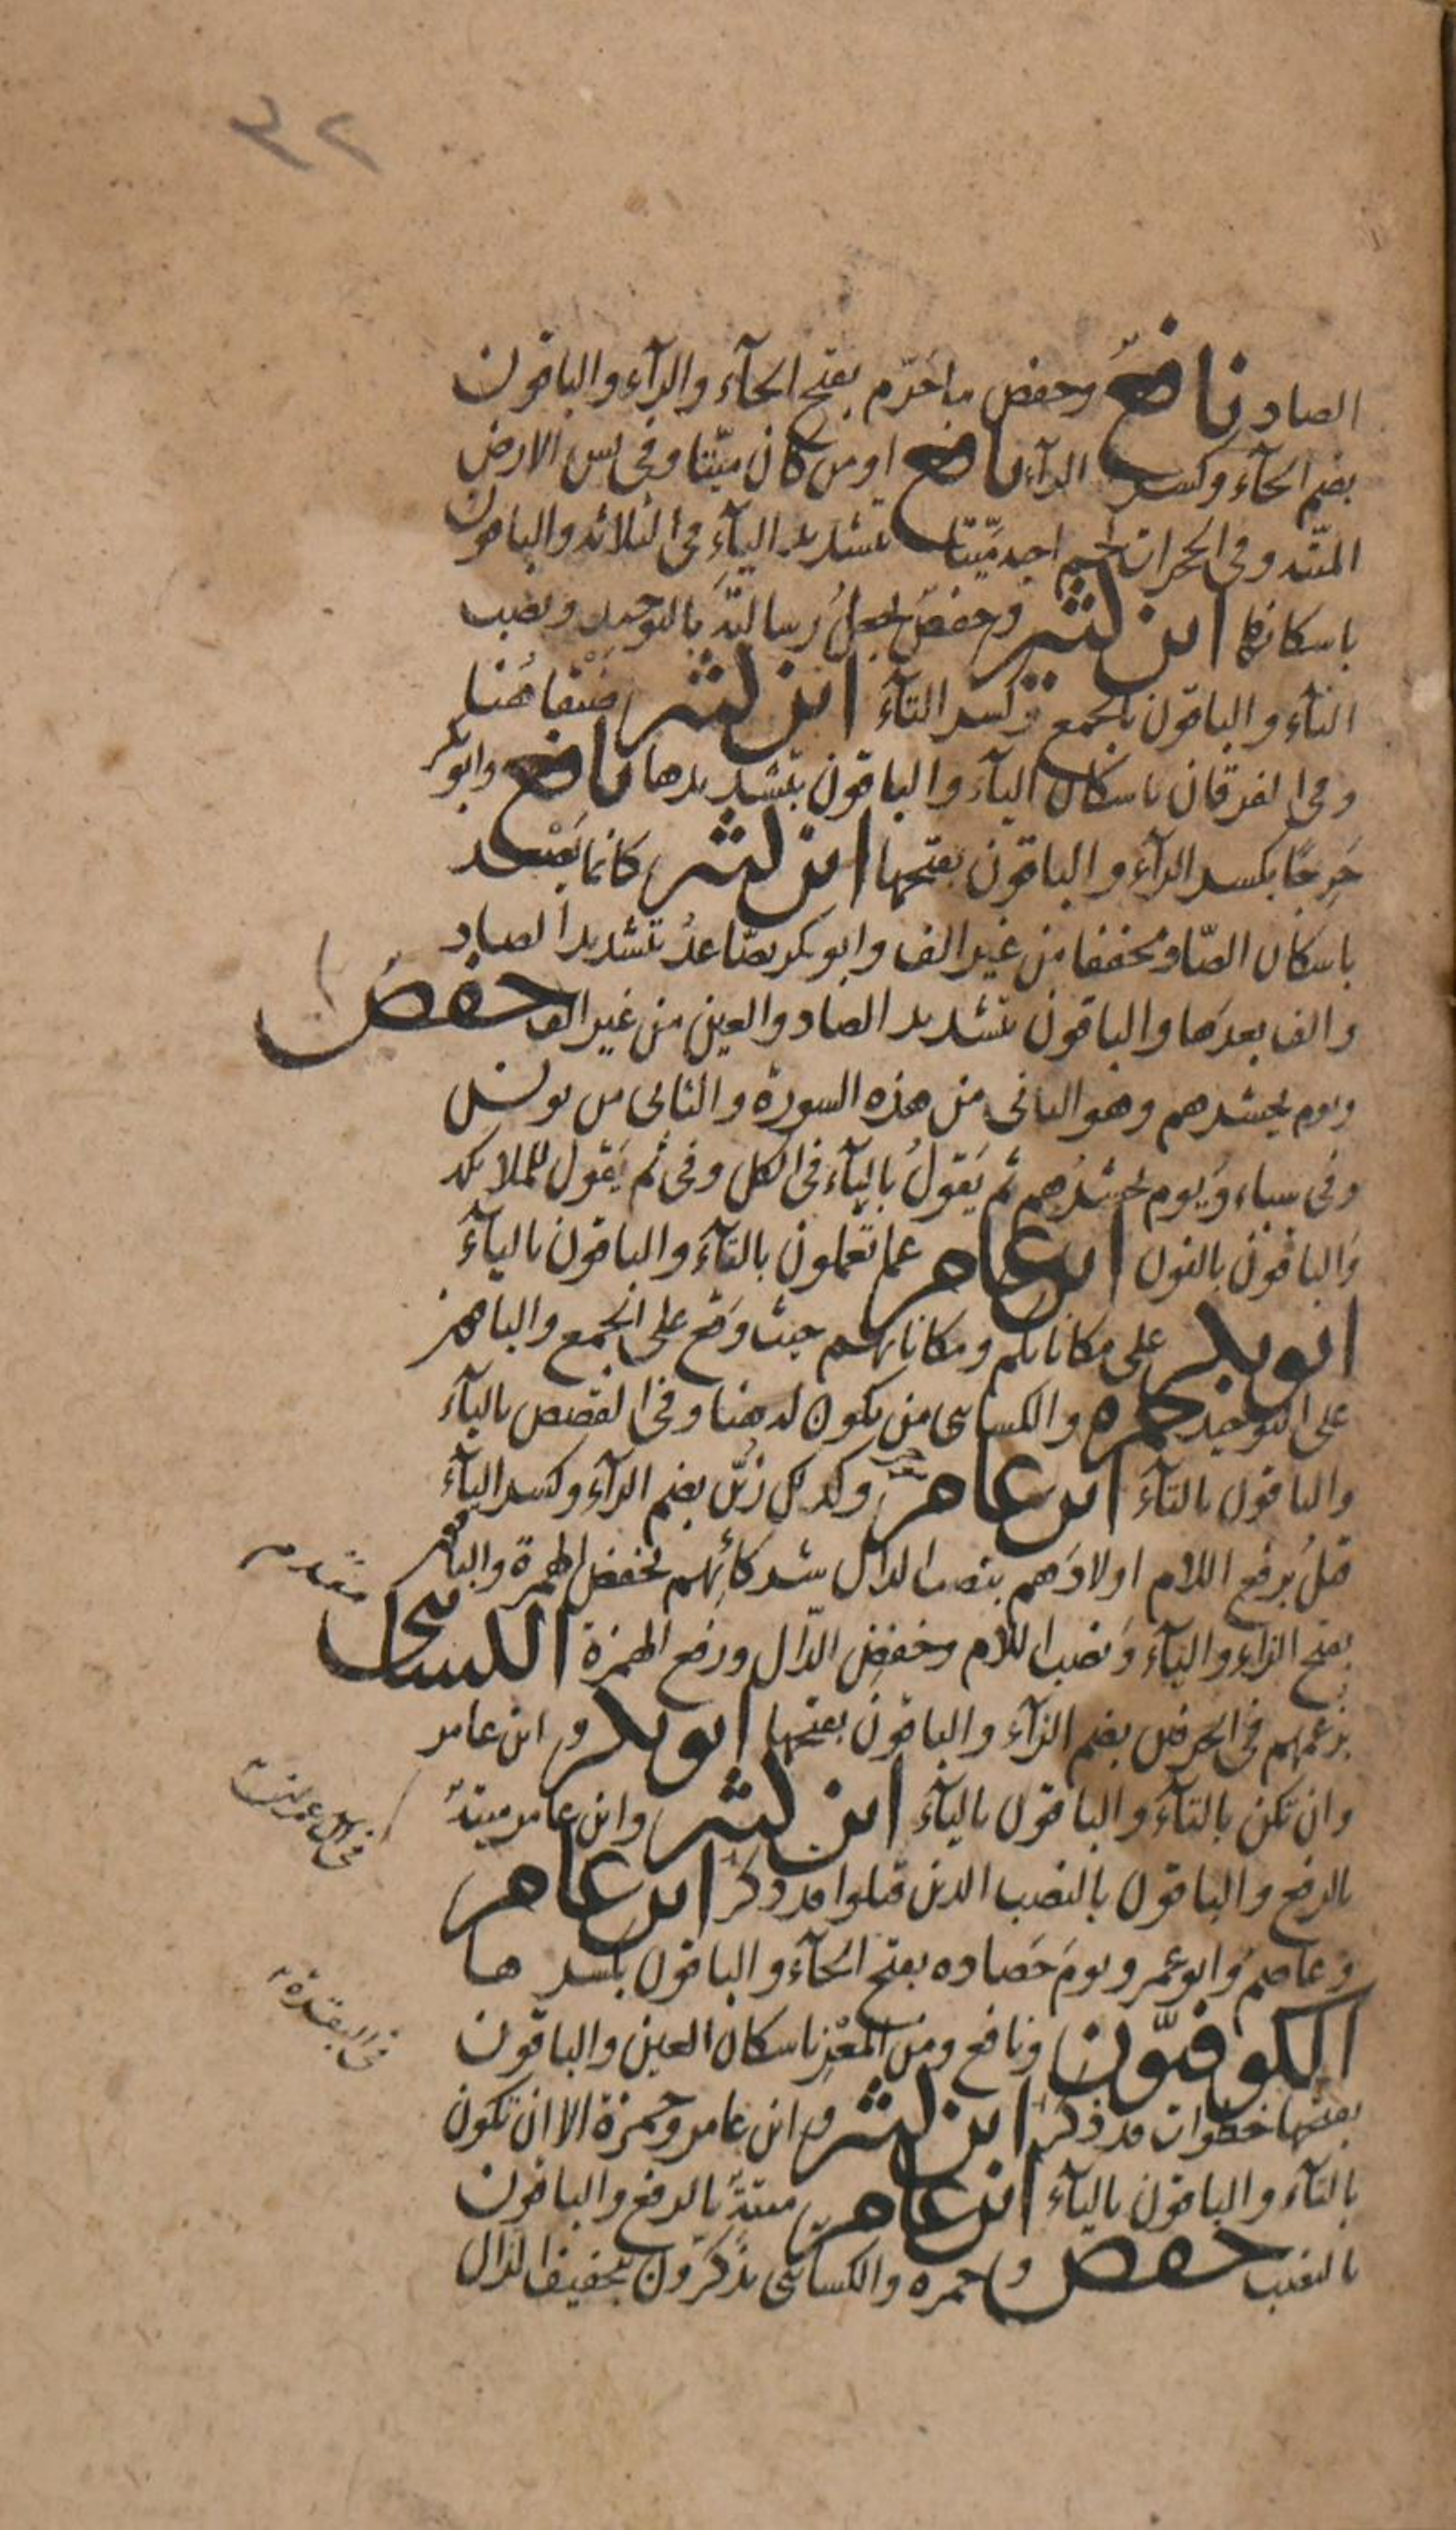 ٣٢
الصاد نافعٌ وحفص ما حَرّم بفتح الحآء والرآء والباقون
بضم الحآء وكسر الرآء نافع او من كان ميّتا وفى يس الارض
الميّتة وفى الحجرات لحم اخيه ميّتا بتشديد اليآء فى الثلاثة والباقون
باسكانها ابن كثير وحفصٌ يجعلُ رسالتَه بالتوحيد ونصب
التآء والباقون بالجمع وكسر التآء ابن كثير ضَيْقا هُنا
وفى الفرقان باسكان اليآء والباقون بتشديدها نافع وابو بكر
حَرِجًا بكسر الرآء والباقون بفتحها ابن كثير كانما يَصْعد
باسكان الصّاد مخففا من غير الف وابو بكر يصّاعدُ بتشديد الصاد
والف بعدَها والباقون بتشديد الصاد والعين من غير الف حفصٌ
ويوم يحشرهم وهو الثانى من هذه السورة والثانى من يونس
وفى سباء وَيوم يحشرُهم ثم يَقولُ باليآء فى الكل وفى ثم يَقول للملائكة
وَالباقون بالنون ابن عامر عما تعملون بالتآء والباقون باليآء
ابو بكر على مكاناتكم ومكاناتهم حيث وَقع على الجمع والباقون
على التوحيد حمزه والكسائى من يكون له هنا وفى القصص باليآء
والباقون بالتآء ابن عامر وكذلك زُيّن بضم الزآء وكسر اليآء
قتلُ برفع اللام اولادَهم بنصب الدال شركائِهم بخفض الهمزة والباقون
بفتح الزاء واليآء وَنصب اللام وخفض الدّال ورفع الهمزة الكسائى
بزعمهم فى الحرفين بضم الزآء والباقون بفتحها ابو بكر و ابن عامر
وان تكن بالتآء والباقون باليآء ابن كثير وابن عامر ميتةٌ
بالرفع والباقون بالنصب الذين قتلوا قد ذكر ابن عامر
وعاصم وَابو عمرو يومَ حَصاده بفتح الحآء والباقون بكسرها
الكوفيّون ونافع ومن المعْزِ باسكان العين والباقون
بفتحها خطوات قد ذكر ابن كثير و ابن عامر وحمزة الا ان تكون
بالتآء والباقون باليآء ابن عامر ميتةٌ بالرفع والباقون
بالنصب حفص و حمزه والكسائى تذكّرون بتخفيف الذال
متقدمه
فى آل عمران
فى البقرة